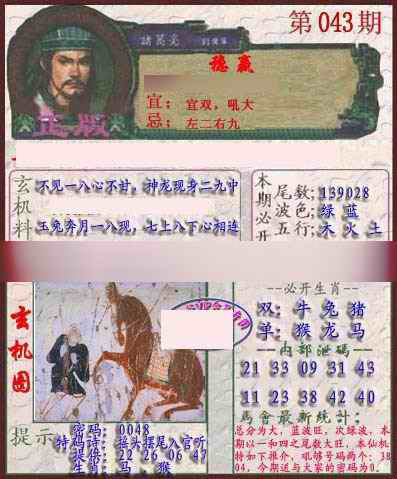 第043期
諸葛亮
稳赢
宜：宜双，吼大
忌：左二右九
正版
玄机料
不见一八心不甘，神龙现身二九中
玉兔奔月一八现，七上八下心相连
本期必开
尾数：139028
波色：绿 蓝
五行：木 火 土
玄机图
必开生肖
双：牛 兔 猪
单：猴 龙 马
内部泄码
21 33 09 31 43
11 23 38 41 40
34 29 39 24 42
馬會最新統計：
总分为大，蓝波旺，次绿波，本
期以一和四之尾数大旺，本仙机
特如下推介，吼够号码两个：38
04，今期送与大家的密码为0。
提示
密码：0048
特码诗：摇头摆尾入官听
提供：22 26 06 47
生肖：马，猴